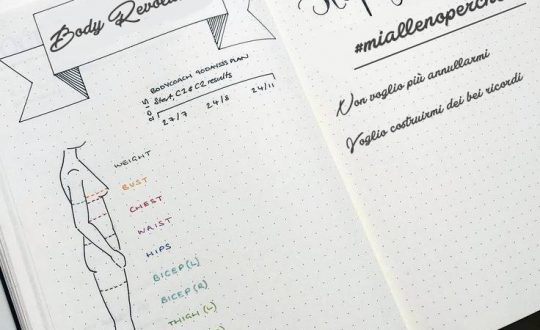 Body Revolu
BODYCOACH 90DAYSSS PLAN
Start, C2 & C2 results
27/7 24/8 24/11
WEIGHT
BUST
CHEST
WAIST
HIPS
BICEP (L)
BICEP (R)
THIGH (L)
#miallenoperch
Non voglio più annullarmi
Voglio costruirmi dei bei ricordi